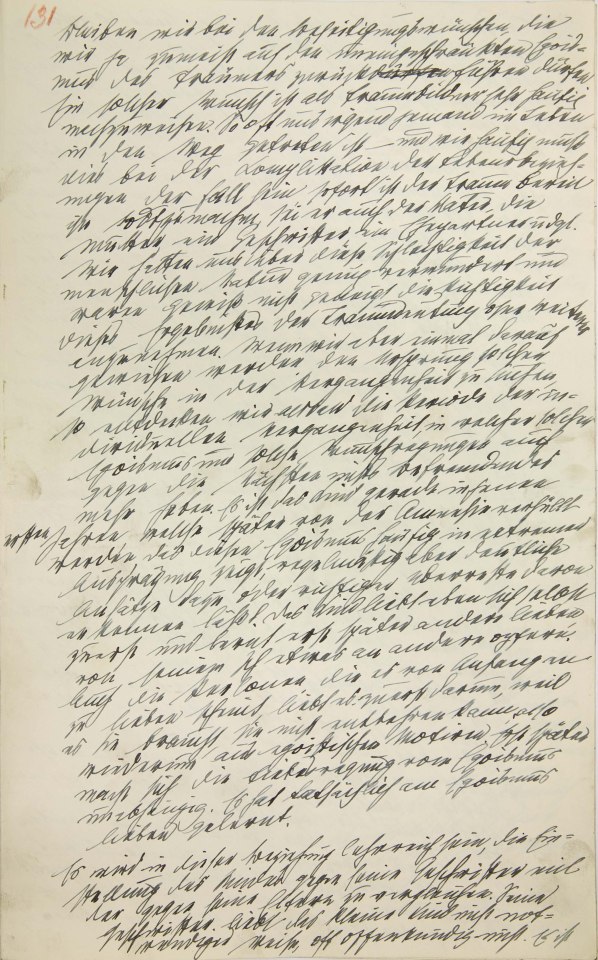 131
Bleiben wir bei den Beseitigungswünschen, die
wir ja zumeist auf den uneingeschränkten Egois-
mus des Träumers zurückführen dürfen
Ein solcher Wunsch ist als Traumbildner sehr häufig
nachzuweisen. So oft uns irgend jemand im Leben
in den Weg getreten ist – und wie häufig muß
dies bei der Complikation der Lebensbezieh-
ungen der Fall sein sofort ist der Traum bereit
ihn todtzumachen, sei er auch der Vater, die
Mutter, ein Geschwister, ein Ehepartner udgl.
Wir hatten uns über diese Schlechtigkeit der
menschlichen Natur genug verwundert und
waren gewiß nicht geneigt, die Richtigkeit
dieses Ergebnisses der Traumdeutung ohne weiteres
anzunehmen. Wenn wir aber einmal darauf
gewiesen werden den Ursprung solcher
Wünsche in der Vergangenheit zu suchen
so entdecken wir alsbald die Periode der in-
dividuellen Vergangenheit in welcher solcher
Egoismus und solche Wunschregungen auch
gegen die Nächsten nichts Befremdendes
mehr haben. Es ist das Kind gerade in jenen
ersten Jahren welche später von der Amnesie verhüllt
werden das diesen Egoismus häufig in extremer
Ausprägung zeigt, regelmäßig aber deutliche
Ansätze dazu, oder richtiger, Überreste davon
erkennen läßt. Das Kind liebt eben sich selbst
zuerst und lernt erst später andere lieben
von seinem Ich etwas an andere opfern.
Auch die Personen die es von Anfang an
zu lieben scheint, liebt es zuerst darum, weil
es sie braucht sie nicht entbehren kann, also
wiederum aus egoistischen Motiven. Erst später
macht sich die Liebesregung vom Egoismus
unabhängig. Es hat tatsächlich am Egoismus
lieben gelernt.
Es wird in dieser Beziehung lehrreich sein, die Ein-
stellung des Kindes gegen seine Geschwister mit
der gegen seine Eltern zu vergleichen. Seine
Geschwister liebt das kleine Kind nicht not-
wendiger Weise, oft offenkundig nicht. Es ist